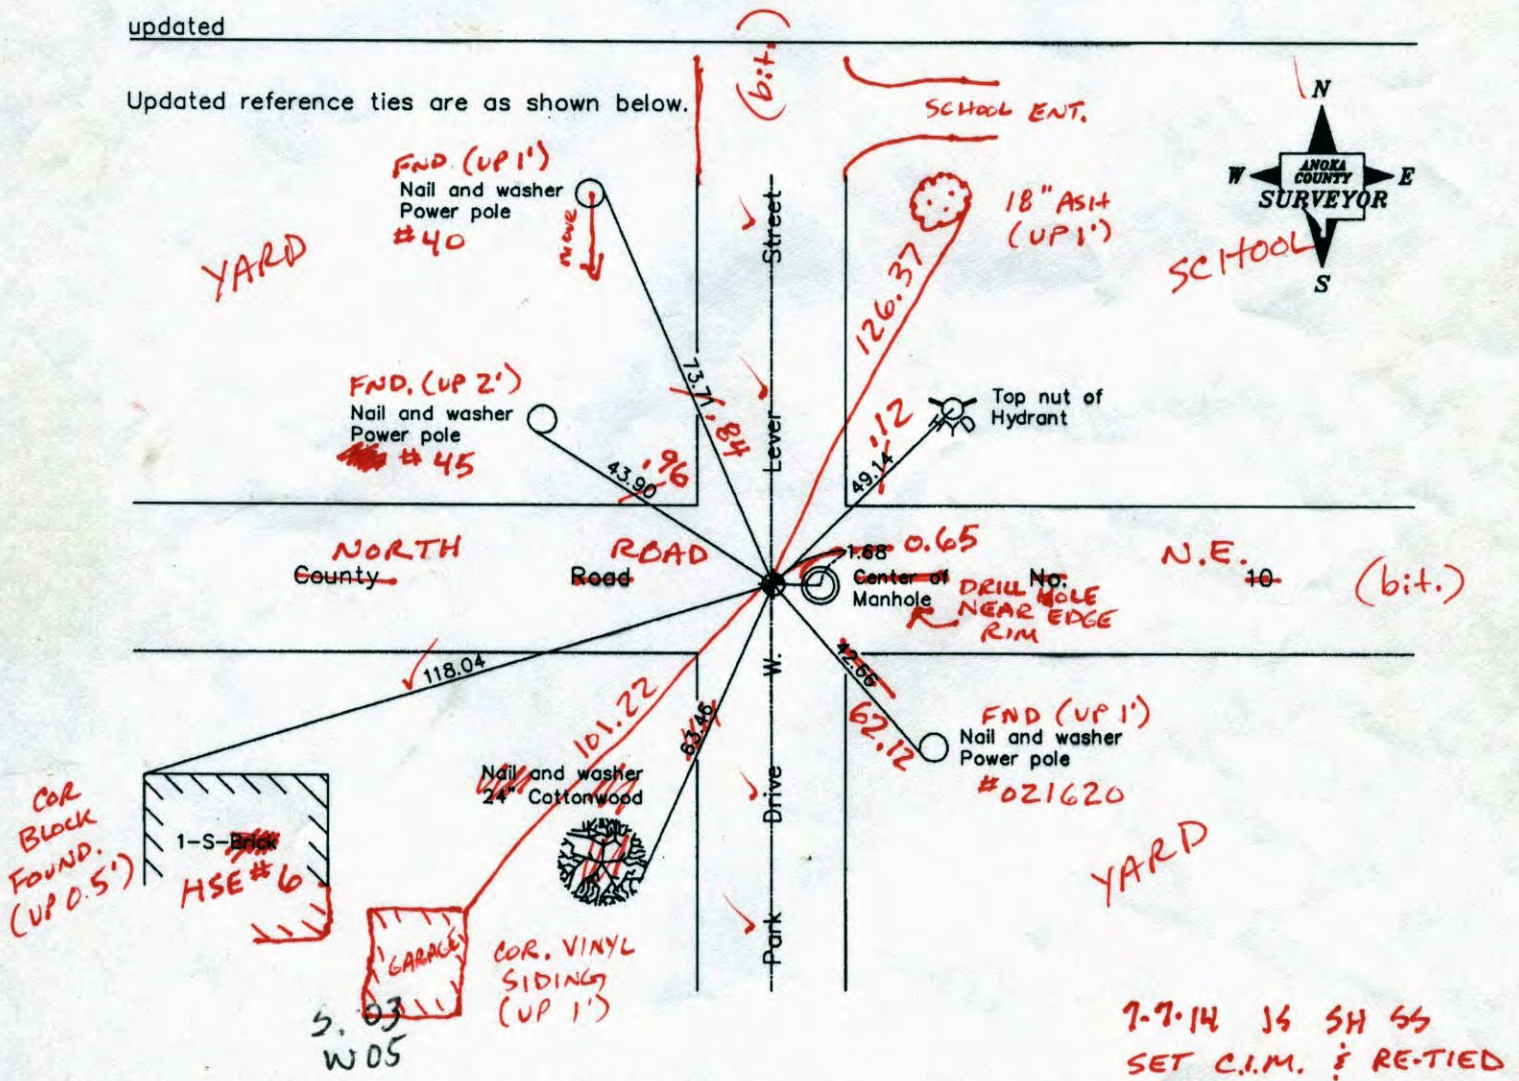 updated
(bit.)
Updated reference ties are as shown below.
SCHOOL ENT.
N
W ANOKA COUNTY SURVEYOR E
S
FND. (UP 1')
Nail and washer
Power pole
#40
MOVE
YARD
Street
18" ASH
(UP 1')
126.37
SCHOOL
FND. (UP 2')
Nail and washer
Power pole
#45
73.71
.84
43.90
.96
Lever
49.14
.12
HYD
Top nut of
Hydrant
NORTH ROAD N.E.
County Road No. 10
(bit.)
1.68 0.65
Center of
Manhole
DRILL HOLE
NEAR EDGE
RIM
118.04
101.22
63.46
W.
42.66
62.12
FND (UP 1')
Nail and washer
Power pole
#021620
YARD
Nail and washer
24" Cottonwood
Drive
COR
BLOCK
FOUND.
(UP 0.5')
1-S-Brick
HSE #6
GARAGE
COR. VINYL
SIDING
(UP 1')
Park
S. 03
W 05
7-7-14 JS SH SS
SET C.I.M. & RE-TIED